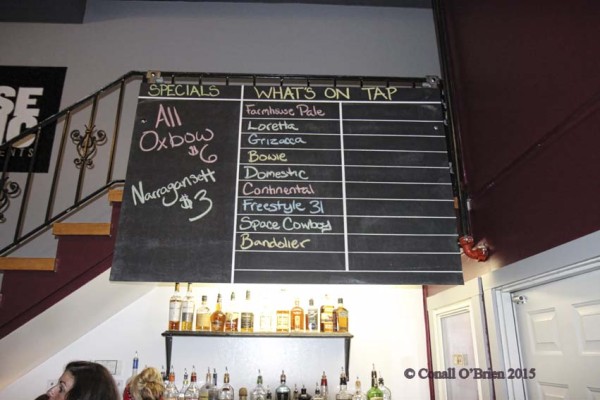 SPECIALS
All
Oxbow
$6
Narragansett
$3
WHAT'S ON TAP
Farmhouse Pale
Loretta
Grizacca
Bowie
Domestic
Continental
Freestyle 31
Space Cowboy
Bandolier
SE
© Conall O'Brien 2015